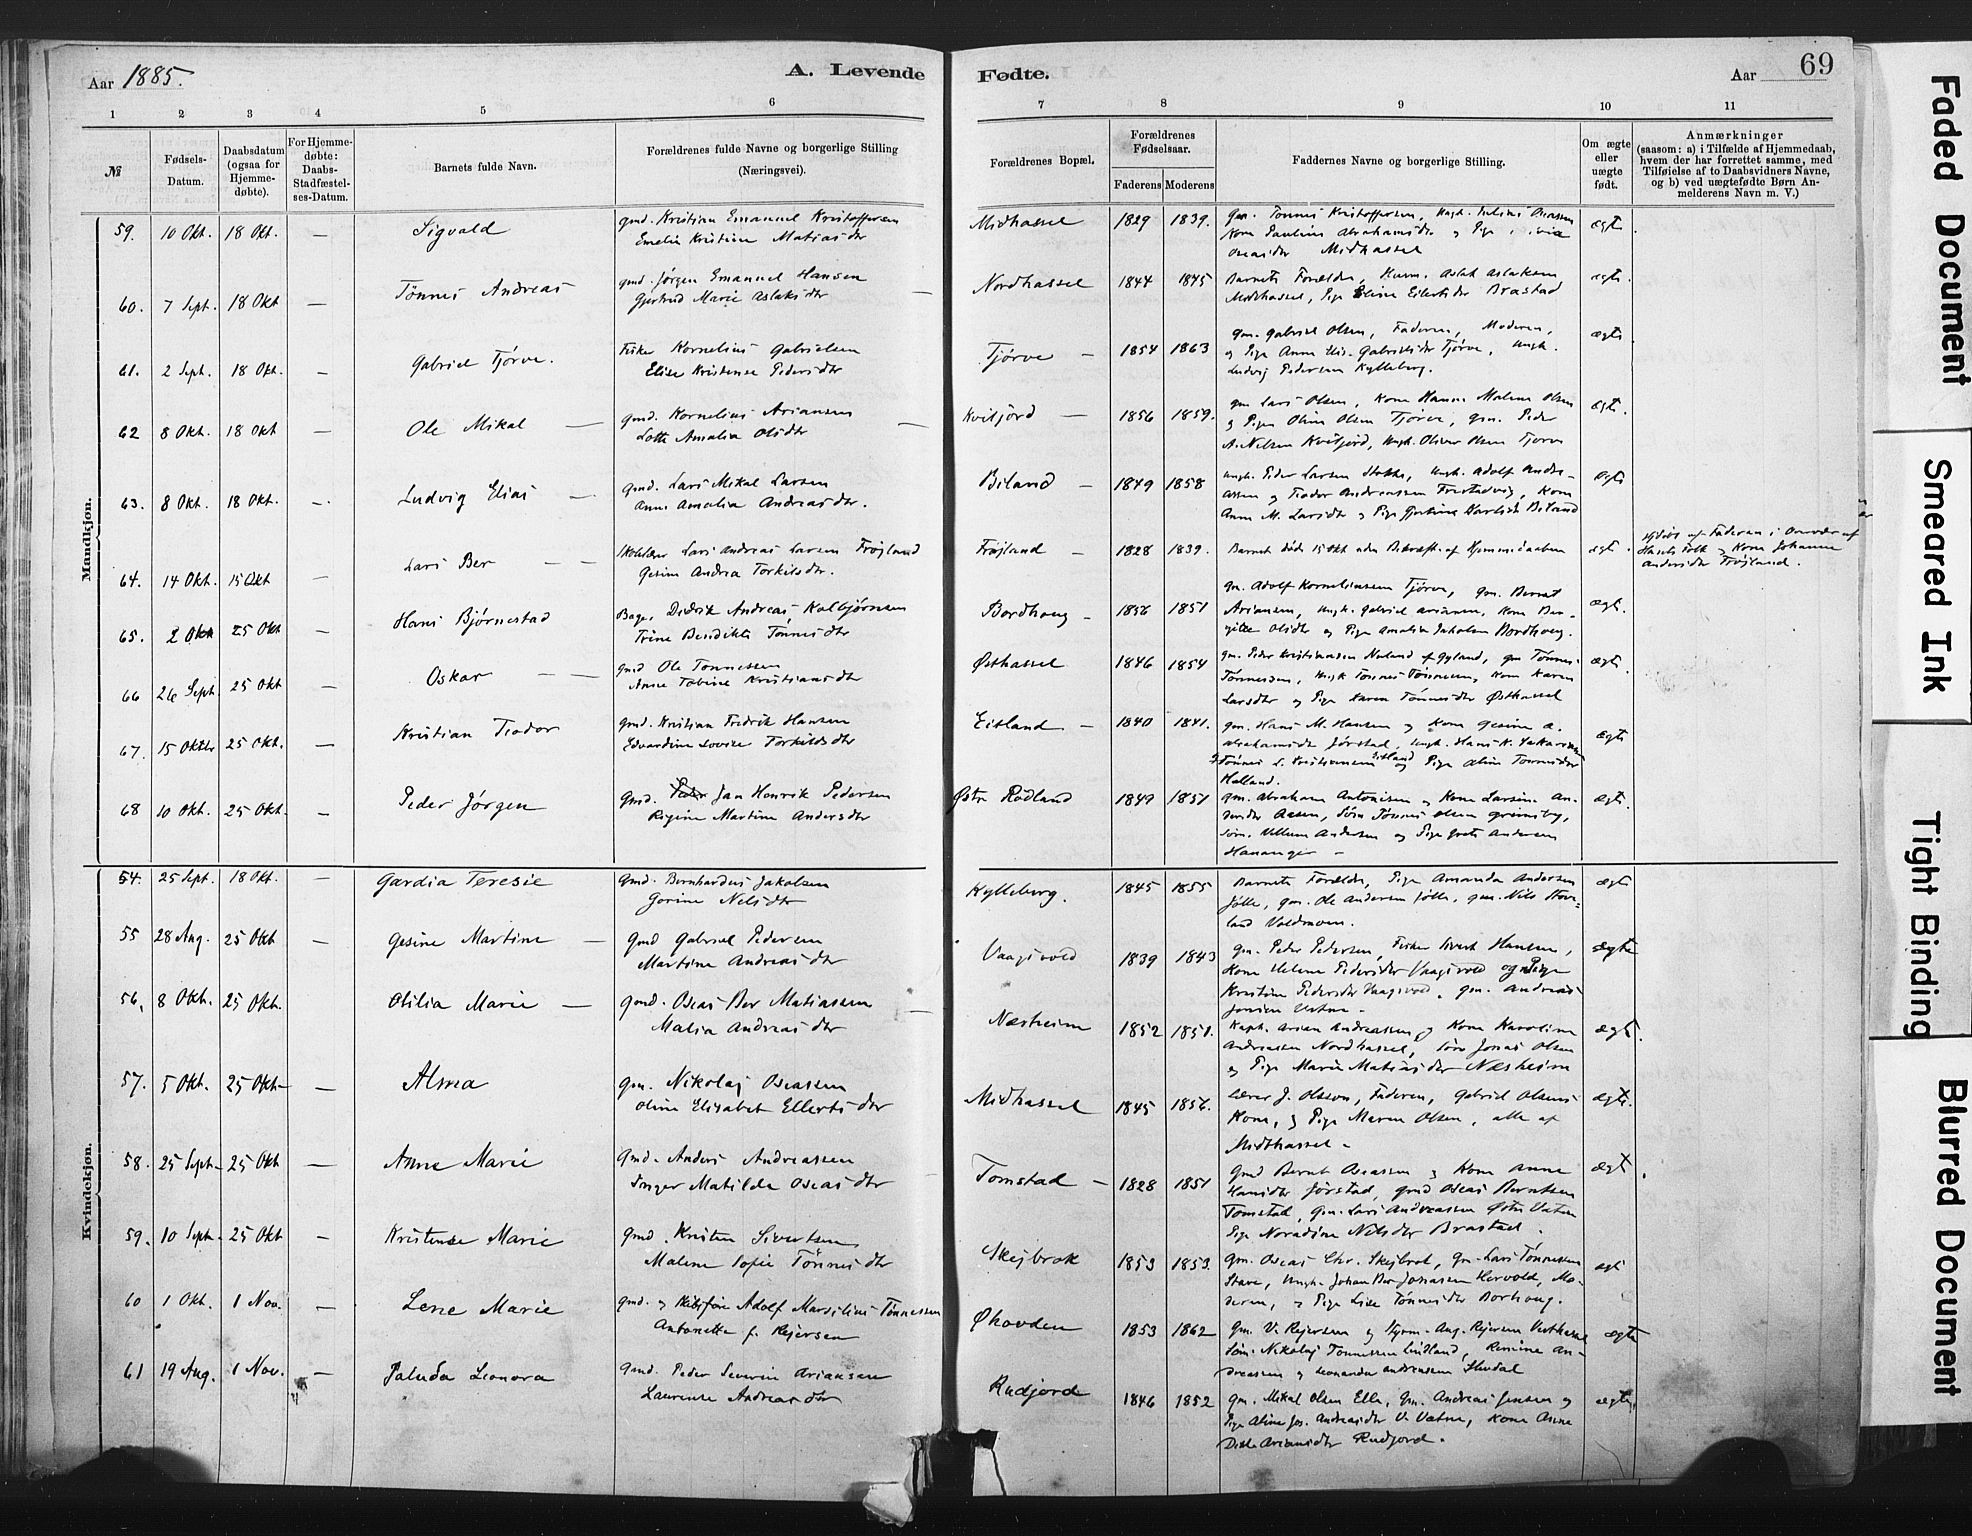 Aar 1885.
A. Levende
Fødte.
Aar
69
1 2 3 4 5 6 7 8 9 10 11
№
Fødsels-
Datum.
Daabsdatum
(ogsaa for
Hjemme-
døbte).
For Hjemme-
døbte:
Daabs-
Stadfæstel-
ses-Datum.
Barnets fulde Navn.
Forældrenes fulde Navne og borgerlige Stilling
(Næringsvei).
Forældrenes Bopæl.
Forældrenes
Fødselsaar.
Faderens Moderens
Faddernes Navne og borgerlige Stilling.
Om ægte
eller
uægte
født.
Anmærkninger
(saasom: a) i Tilfælde af Hjemmedaab,
hvem der har forrettet samme, med
Tilføielse af to Daabsvidners Navne,
og b) ved uægtefødte Børn An-
melderens Navn m. V.)
Mandkjøn.
59. 10 Okt. 18 Okt. — Sigvald
gmd. Kristian Emanuel Kristoffersen
Emelie Kristine Matiasdtr
Midhassel 1829 1839.
gm. Tønnes Kristoffersen, Ungk. Julius Oseassen
Kone Pauline Abrahamsdtr og Pige
Oseasdtr Midhassel
ægte.
60. 7 Sept. 18 Okt — Tønnes Andreas
gmd. Jørgen Emanuel Hansen
Gjertrud Marie Aslaksdtr
Nordhassel 1844 1845
Barnets Forældre, Aslak Aslaksen
Midhassel, Pige Eline Eilertsdtr Brastad
ægte.
61. 2 Sept. 18 Okt. — Gabriel Tjörve.
Fisker Kornelius Gabrielsen
Elise Kristense Pedersdtr
Tjörve — 1854 1863
gm. Gabriel Olsen, Faderen, Moderen,
og Pige Anne Elis. Gabrielsdtr Tjörve, Ungk.
Ludvig Pedersen Kylleberg.
ægte
62 8 Okt. 18 Okt — Ole Mikal —
gmd. Kornelius Ariansen
Lotte Amalia Olsdtr
Kviljord — 1856 1859.
gm Lars Olsen, Kone Hanne Malene Olsen
og Pigen Oline Olsen Tjörve, gm. Peder
A. Nilsen Kviljord, Ungk. Oliver Olsen Tjorve
ægte.
63. 8 Okt. 18 Okt. — Ludvig Elias —
gmd. Lars Mikal Larsen
Anne Amalia Andreasdtr.
Biland — 1849 1858
Ungk. Peder Larsen, Ungk. Adolf Andre-
assen og Teodor Andreassen Frestadvig, Kone
Anne M. Larsdtr og Pige Gjertine Biland
ægte
64. 14 Okt. 15 Okt — Lars Ber — —
Skolelærer Lars Andreas Larsen Fröjland
Gesine Andrea Torkilsdtr.
Fröjland — 1828 1839.
Barnet döde 15 Okt uden Bekræft. af Hjemmedaaben
ægte.
Hjdøbt af Faderen i Overvær af
Kone Johanne
Andersdtr Fröjland.
65. 2 Okt 25 Okt — Hans Bjørnestad
Bager Didrik Andreas Kolbjørnsen
Trine Bendikte Tønnesdtr
Bordhoug — 1856 1851
gm. Adolf Korneliussen Tjörve, gm. Bernt
Ariansen, Ungk. Gabriel Ariansen, Kone Ber-
gitte Olsdtr og Pige Amalia Jakobsen Bordhoug.
ægte.
66 26 Sept 25 Okt — Oskar — —
gmd Ole Tønnessen
Anne Tobine Kristiansdtr
Østhassel 1846 1854
gm. Peder Kristiansen Nuland af Gyland, gm Tønnes
Tønnessen, Ungk Tønnes Tönnessen, Kone Karen
Larsdtr og Pige Karen Tönnesdtr Østhassel
ægte.
67. 15 Oktbr 25 Okt. — Kristian Teodor
gmd. Kristian Fredrik Hansen
Edvardine Lovise Torkildsdtr
Eitland — 1840 1841.
gm. Hans M. Hansen og Kone Gesine A.
Abrahamsdtr Jørstad, Ungk. Hans K. Sakariassen
og Tönnes L. Kristiansen Eitland og Pige Aline Tønnesdtr
Holland.
ægte
68 10 Okt. 25 Okt. — Peder Jørgen
gmd. Jan Henrik Pedersen
Regine Martine Andersdtr
Østr Rödland 1849 1851
gm. Abraham Antonisen og Kone Larsine An-
dersdtr Aasen, Søn Tönnes Olsen Grimsby,
Søn. Villum Andersen og Pige Grete Andersen
Hananger —
ægte.
Kvindekjøn.
54. 25 Sept. 18 Okt. — Gardia Teresie
gmd. Bernhardus Jakobsen
Gorine Nelsdtr
Kylleberg. 1845 1855
Barnets Forældre, Pige Amanda Andersen
Jölle, gm. Ole Andersen Jölle, gm. Nils
land Voldmoen.
ægte
55 28 Aug. 25 Okt — Gesine Martine —
Gmd Gabriel Pedersen
Martine Andreasdtr
Vaagsvold 1839 1843
gm. Peder Pedersen, Fisker Sivert Hansen,
Kone Helene Pedersdtr Vaagsvold og Pige
Kristine Pedersdtr Vaagsvold, gm. Andreas
ægte
56. 8 Okt. 25 Okt. Otilia Marie —
gmd. Oseas Ber Matiassen
Malia Andreasdtr
Næsheim 1852 1851.
Kapt. Arian Andreassen og Kone Karoline
Andreassen Nordhassel, Søn Jonas Olsen
og Pige Marie Matiasdtr Næsheim
ægte.
57. 5 Okt. 25 Okt — Alma
gm. Nikolaj Oseassen
Oline Elisabet Ellertsdtr
Midhassel 1845 1856.
Lærer J. Olsson, Faderen, Gabriel Olsens
Kone, og Pige Maren Olsen, alle af
Midthassel —
ægte.
58. 25 Sept — 25 Okt — Anne Marie
Gmd. Anders Andreassen
Inger Matilde Oseasdtr
Tomstad — 1828 1851
Gmd Bernt Oseassen og Kone Anne
Hansdtr Jørstad, Gmd Oseas Berntsen
Tomstad, gm. Lars Andreassen Østre Vatne
Pige Noradine Nilsdtr Brastad.
ægte
59. 10 Sept. 25 Okt — Kristense Marie
gmd. Kristen Sivertsen
Malene Sofie Tönnesdtr
Skejbrok 1853 1853.
gm. Oseas Chr. Skejbrok, gm. Lars Tönnessen
Stave, Ungk. Johan Ber Jonassen Hervold, Mo-
deren, og Pige Lise Tönnesdtr Borhoug.
ægte
60 1 Okt. 1 Nov. — Lene Marie
gmd. og Skibsfører Adolf Marsilius Tönnessen
Antonette f. Rejersen
Øhovden 1853 1862
Gm. V. Rejersen og Styrm. Aug. Rejersen Vesthassel
Søn. Nikolaj Tönnessen Lindland, Remine An-
dreassen og Leonarda Andreassen
ægte
61 19 Aug. 1 Nov. — Paluda Leonora
gmd. Peder Severin Ariansen
Laurense Andreasdtr
Rudjord 1846 1852
gm. Mikal Olsen Elle, Gm. Andreas Jensen og
Pige Aline Jos. Andreasdtr V. Vatne, Kone Anne
Ditle Ariansdtr Rudjord.
ægte
Faded Document
Smeared Ink
Tight Binding
Blurred Document